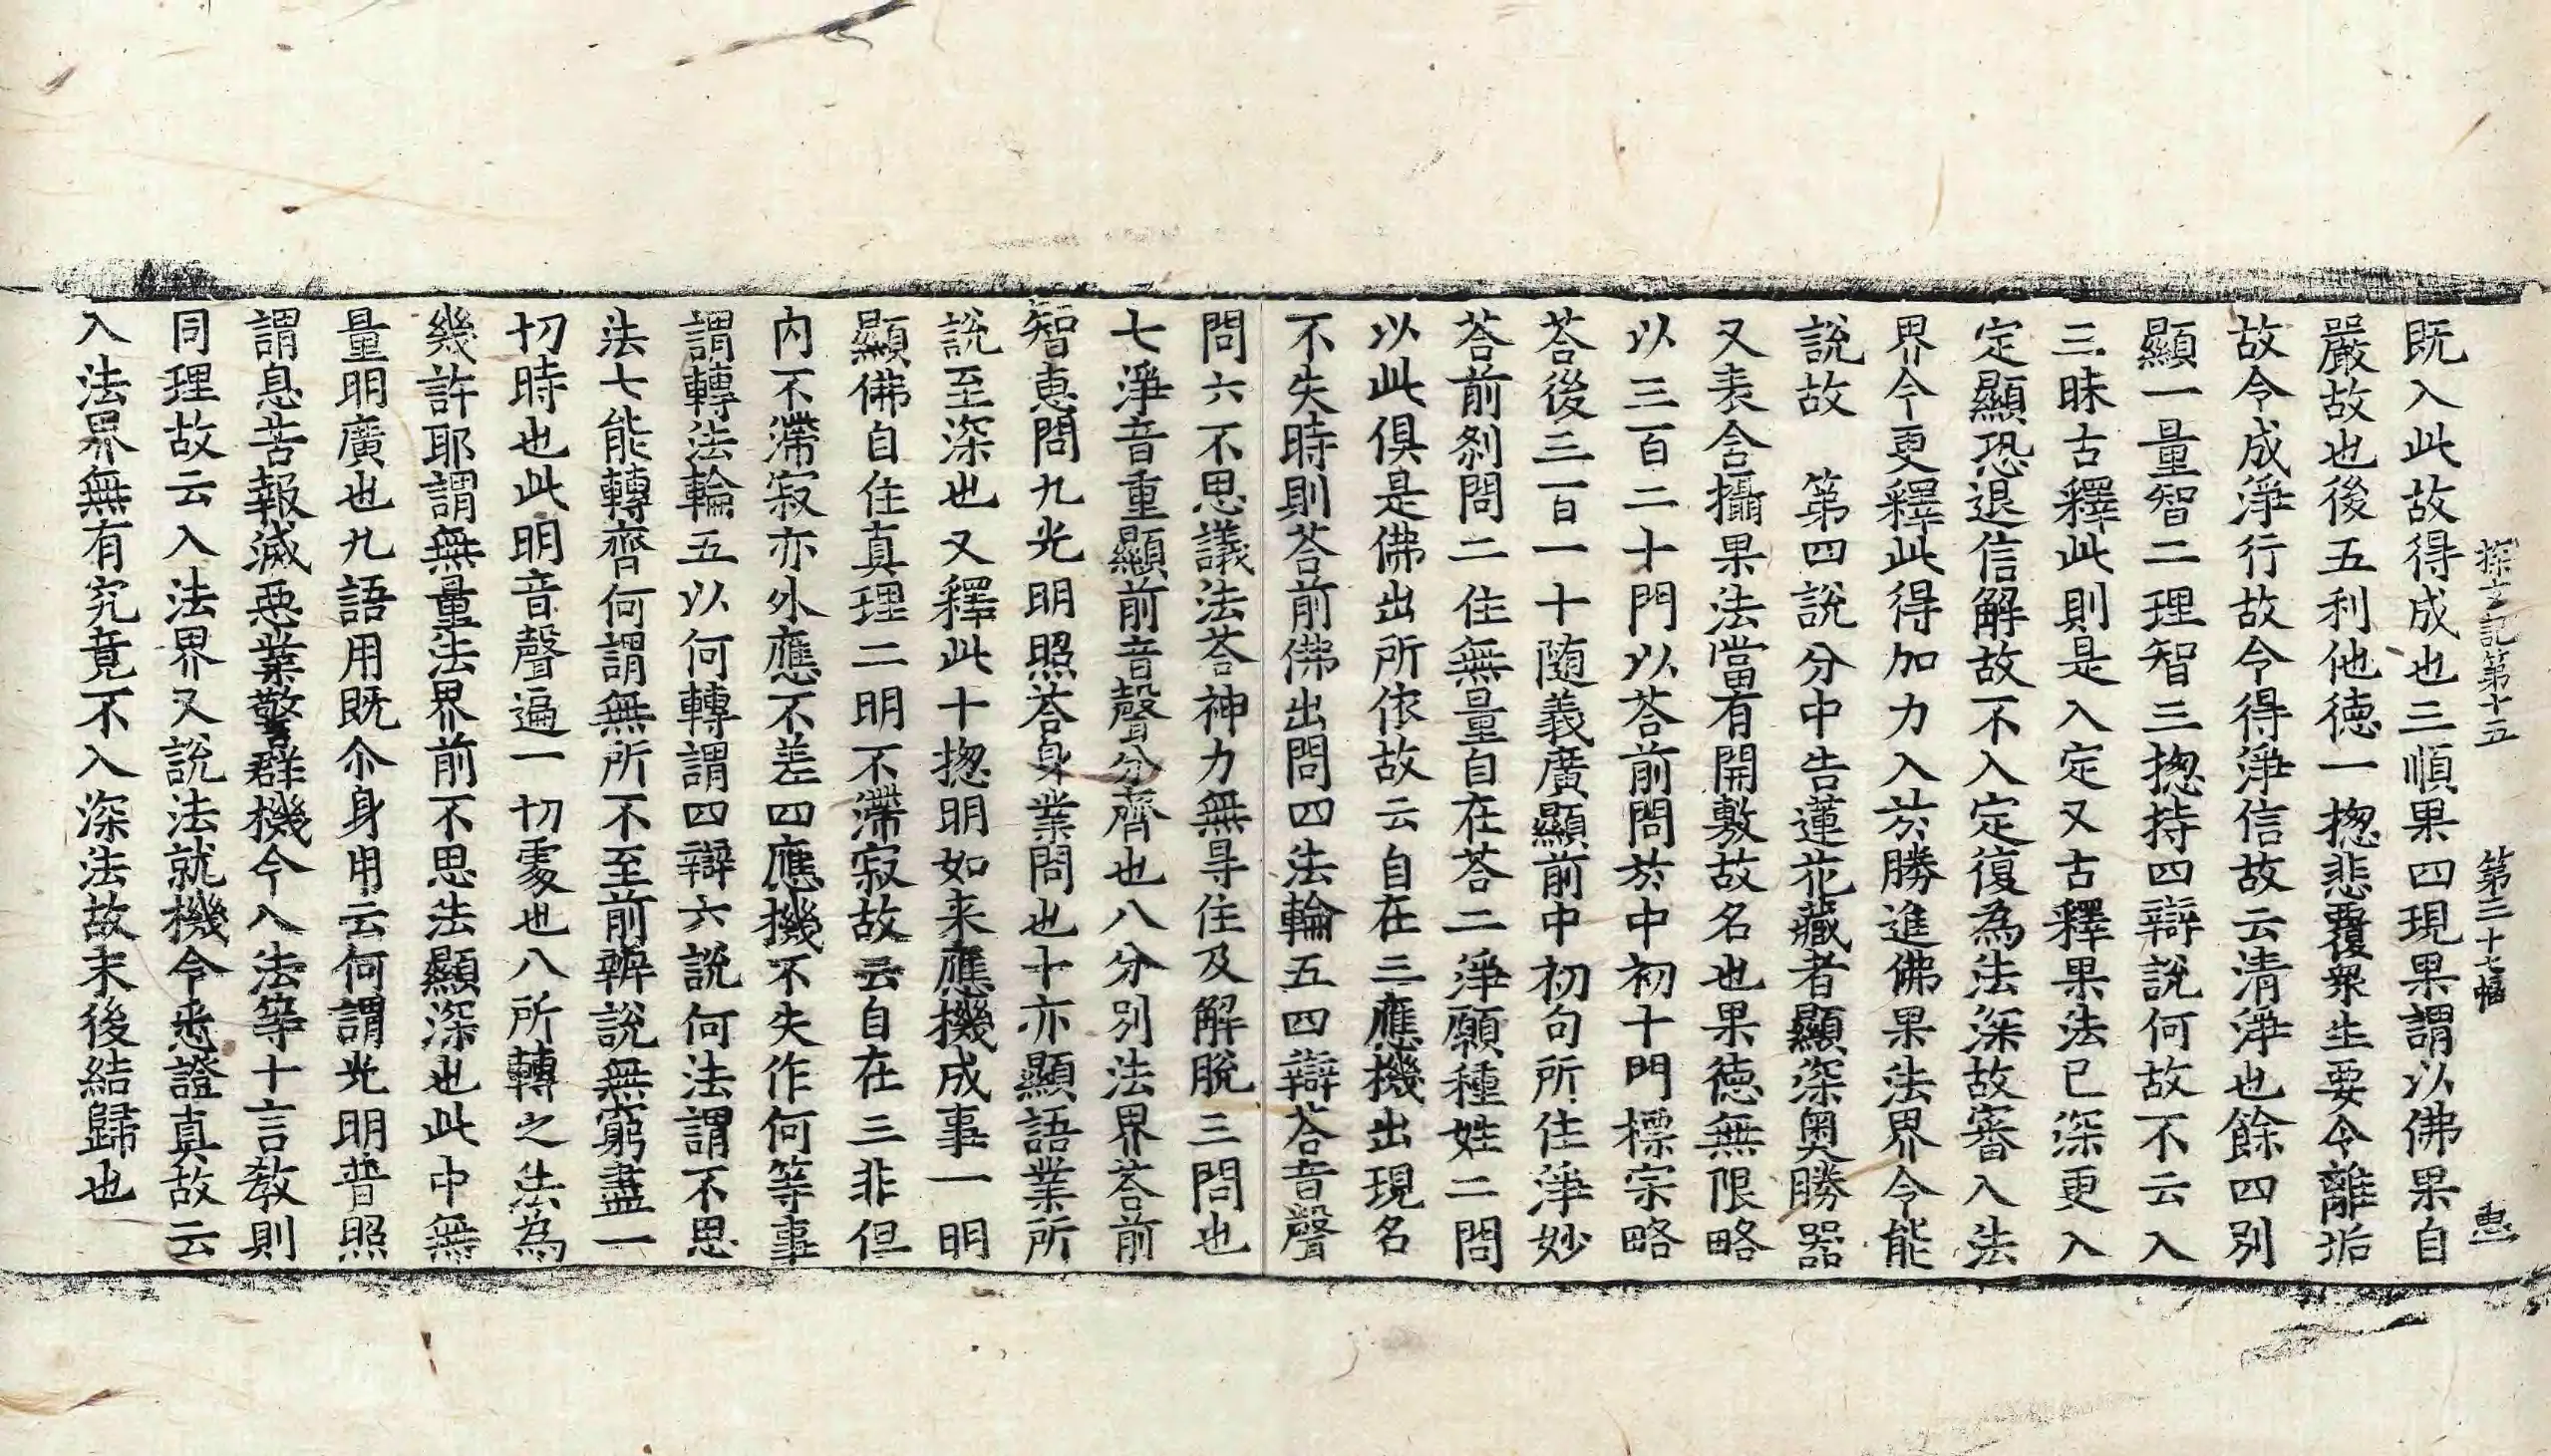 探玄記第十五 第三十七幅 惠
既入此故得成也三順果四現果謂以佛果自
嚴故也後五利他徳一揔悲覆衆生要令離垢
故令成淨行故令得淨信故云清淨也餘四別
顯一量智二理智三揔持四辯說何故不云入
三昧古釋此則是入定又古釋果法已深更入
定顯恐退信解故不入定復為法深故審入法
界今更釋此得加力入於勝進佛果法界令能
說故　第四說分中告蓮花藏者顯深奥勝器
又表含攝果法當有開敷故名也果徳無限略
以三百二十門以荅前問於中初十門標宗略
荅後三百一十随義廣顯前中初句所住淨妙
荅前刹問二住無量自在荅二淨願種姓二問
以此俱是佛出所依故云自在三應機出現名
不失時則荅前佛出問四法輪五四辯荅音聲
問六不思議法荅神力無导住及解脫三問也
七淨音重顯前音聲分齊也八分別法界荅前
智惠問九光明照荅身業問也十亦顯語業所
說至深也又釋此十揔明如来應機成事一明
顯佛自住真理二明不滯寂故云自在三非但
内不滯寂亦外應不差四應機不失作何等事
謂轉法輪五以何轉謂四辯六說何法謂不思
法七能轉齊何謂無所不至前辨說無窮盡一
切時也此明音聲遍一切處也八所轉之法為
幾許耶謂無量法界前不思法顯深也此中無
量明廣也九語用既尒身用云何謂光明普照
謂息苦報滅惡業警群機令入法等十言教則
同理故云入法界又說法就機令悉證真故云
入法界無有究竟不入深法故末後結歸也